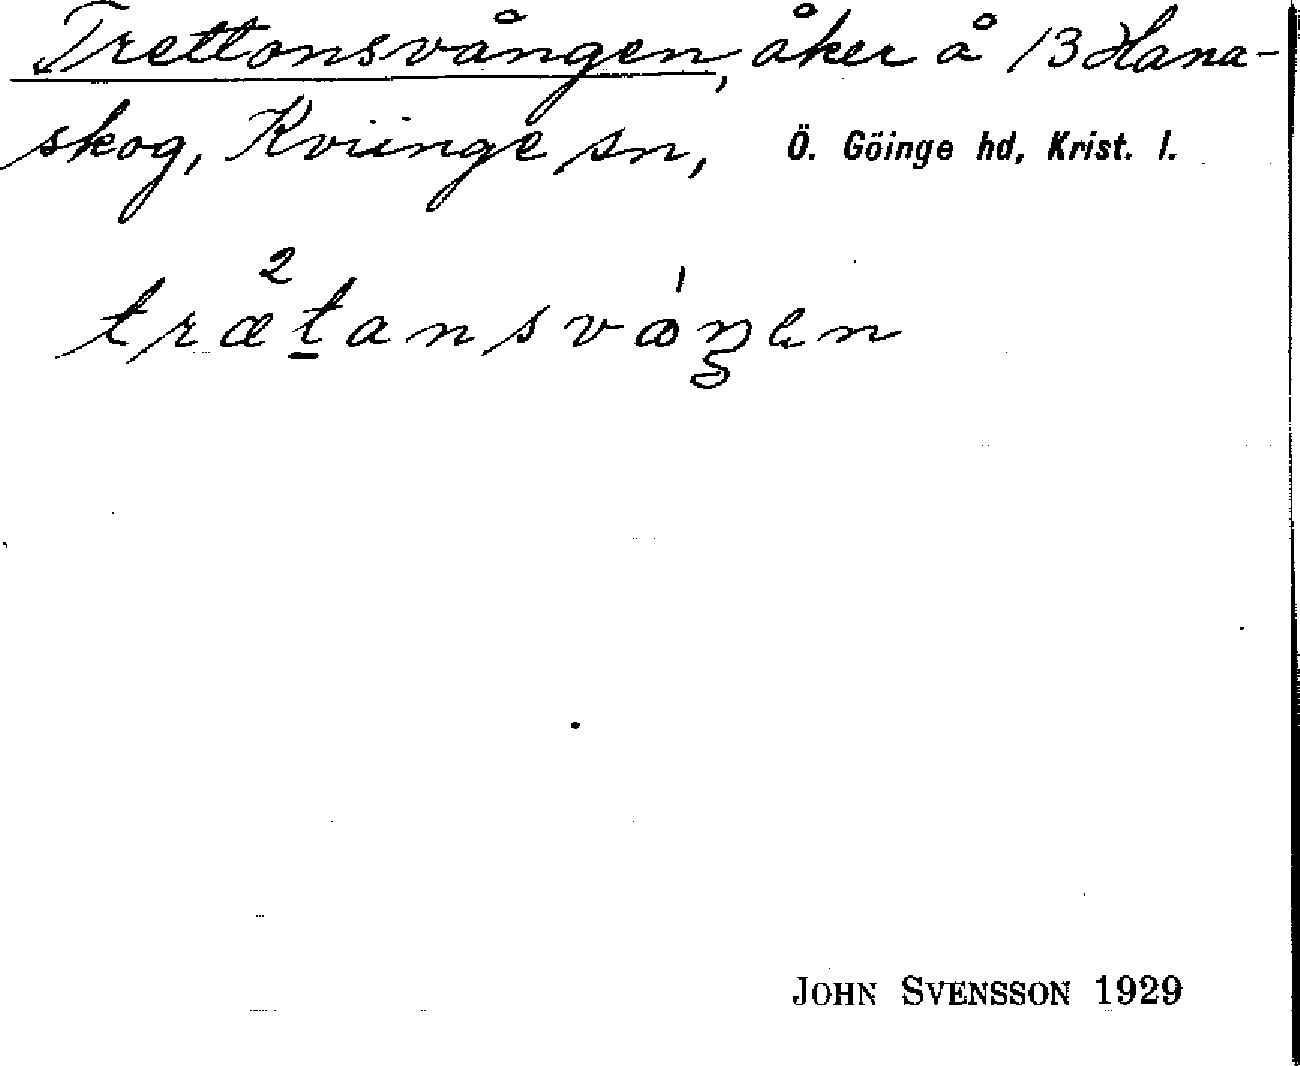 Trettonsvången, åker å 13 Hana-
skog, Kviinge sn, Ö. Göinge hd, Krist. l.
trætansvåŋen
JOHN SVENSSON 1929